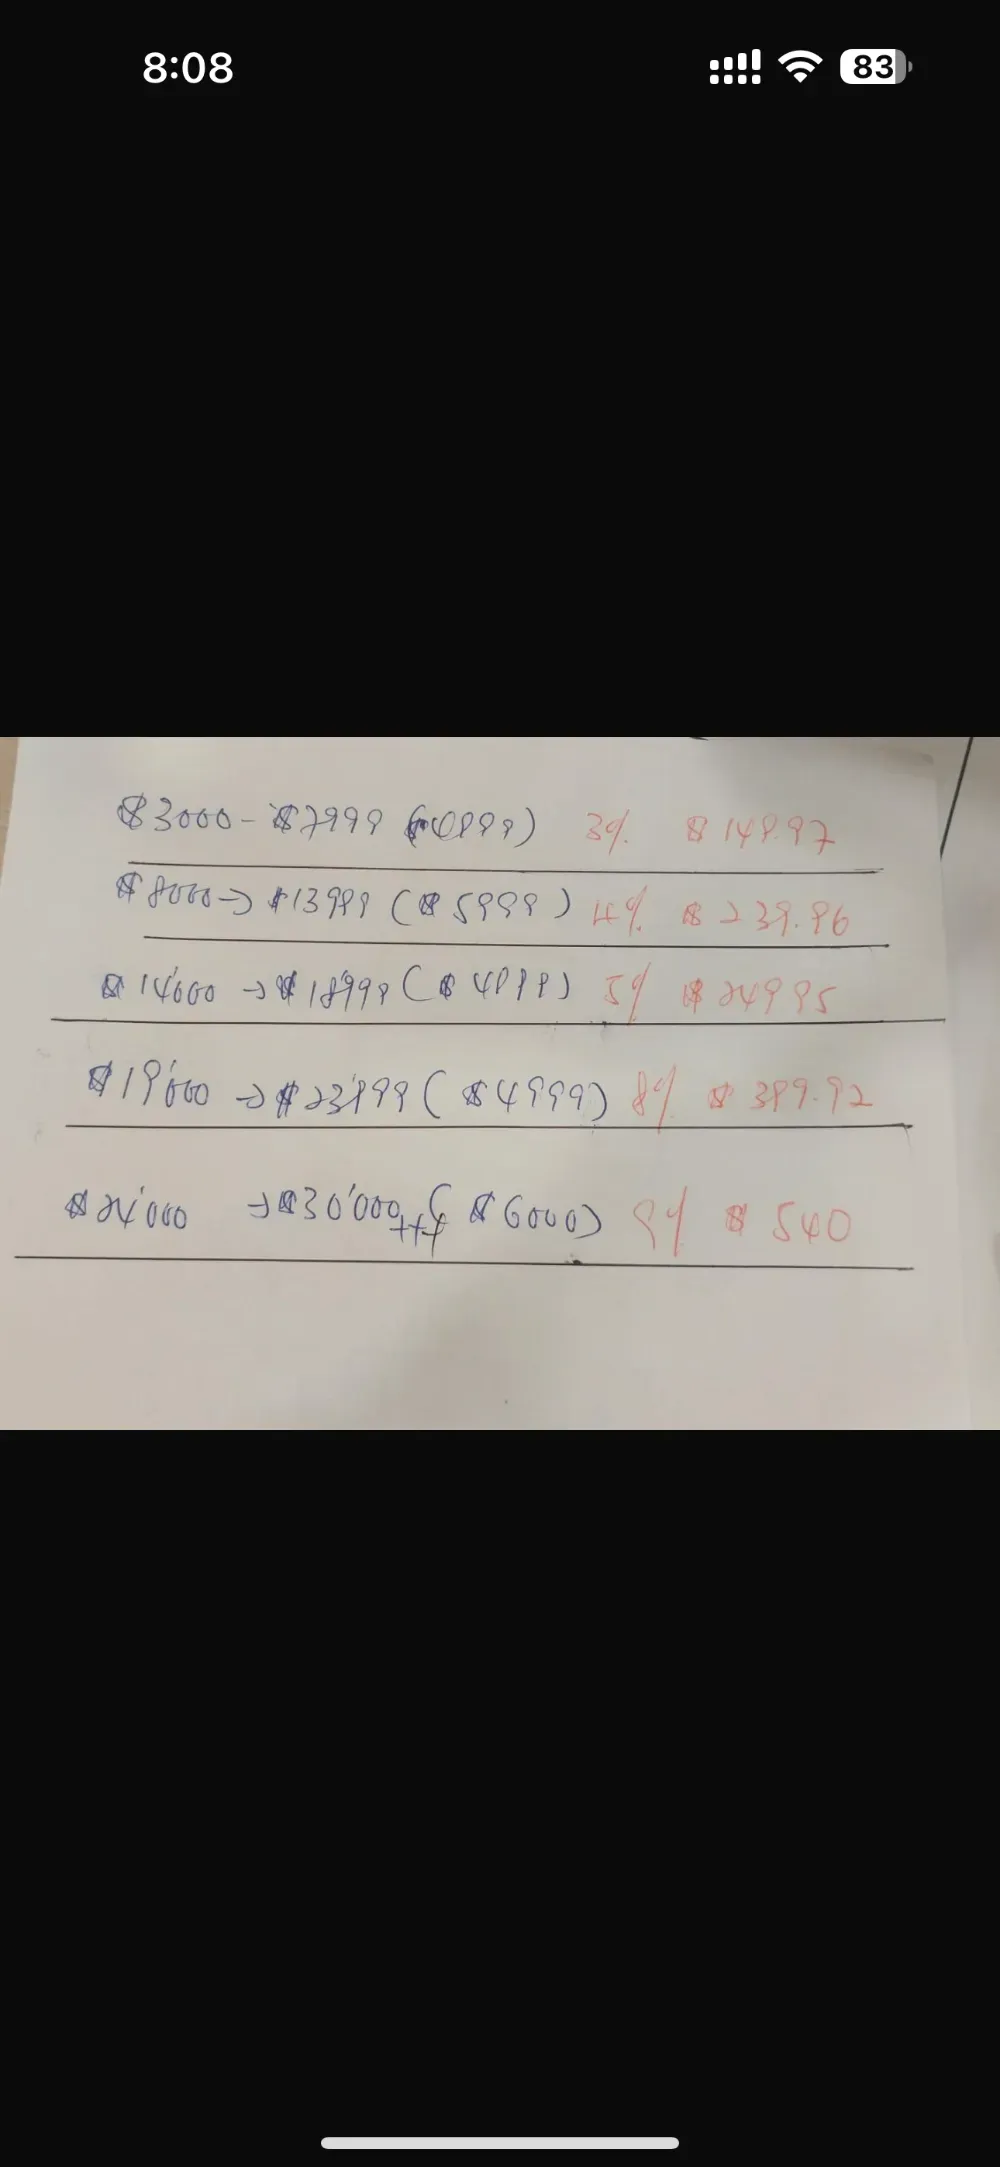 8:08 83
$3000 - $7999 ($4999) 3% $149.97
$8000 → $13999 ($5999) 4% $239.96
$14'000 → $18'999 ($4999) 5% $249.95
$19'000 → $23'999 ($4999) 8% $399.92
$24'000 → $30'000 +++ ($6000) 9% $540